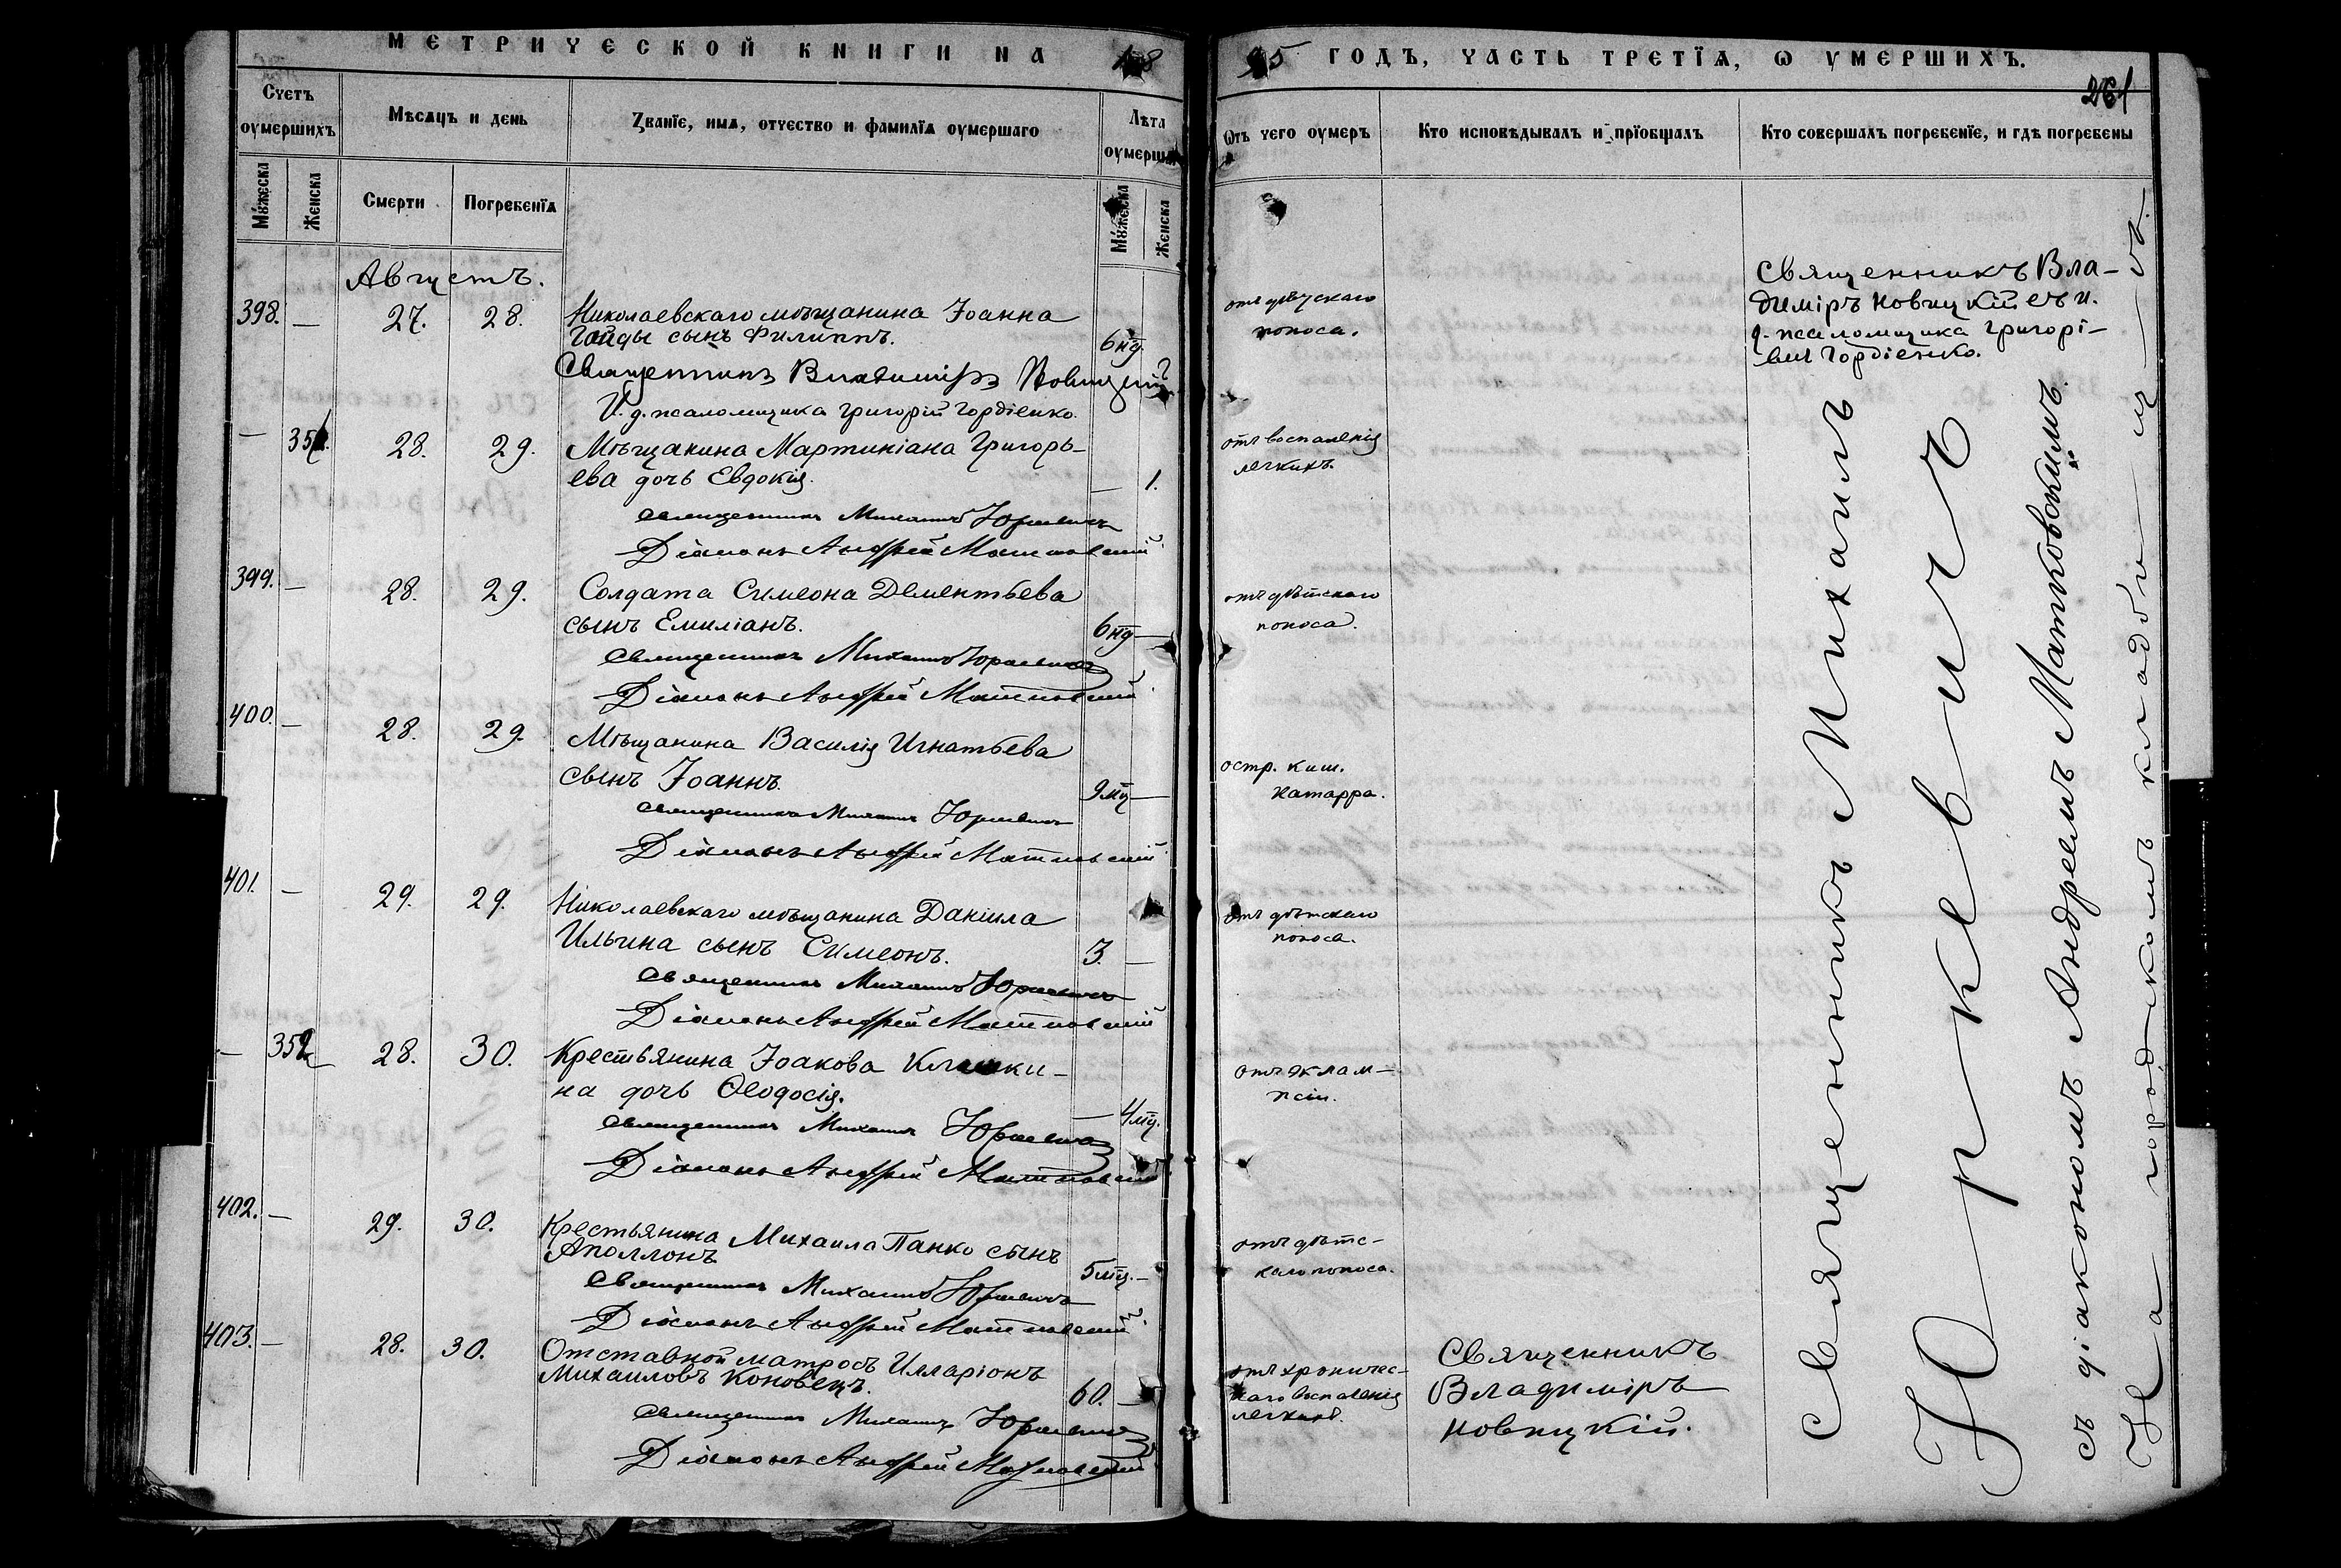 МЕТРИЧЕСКОЙ КНИГИ НА 18
95 ГОДЪ, ЧАСТЬ ТРЕТІЯ, Ѡ УМЕРШИХЪ.
261
Счетъ оумершихъ
Мѣсяцъ и день
Званїе, имя, отчество и фамилїя оумершаго
Лѣта оумершаго
Ѿ чего оумеръ
Кто исповѣдывалъ и прїобщалъ
Кто совершалъ погребенїе, и гдѣ погребены
Мꙋжеска
Женска
Смерти
Погребенїя
Мꙋжеска
Женска
Августъ.
398. — 27. 28. Николаевскаго мѣщанина Іоанна
Гайды сынъ Филиппъ. 6 нд.
Священникъ Владиміръ Новицкій
И. д. псаломщика Григорій Гордіенко.
отъ дѣтскаго
поноса.
Священникъ Вла-
диміръ Новицкій съ и.
д. псаломщика Григорі-
емъ Гордіенко.
— 351. 28. 29. Мѣщанина Мартиніана Григорь-
ева дочь Евдокія. — 1.
Священникъ Михаилъ Юркевичъ
Діаконъ Андрей Матковскій
отъ воспаленія
легкихъ.
399. — 28. 29. Солдата Симеона Дементьева
сынъ Емиліанъ. 6 нд —
Священникъ Михаилъ Юркевичъ
Діаконъ Андрей Матковскій
отъ дѣтскаго
поноса.
400. — 28. 29. Мѣщанина Василія Игнатьева
сынъ Іоаннъ. 9 мц —
Священникъ Михаилъ Юркевичъ
Діаконъ Андрей Матковскій
остр. киш.
катарра.
401. — 29. 29. Николаевскаго мѣщанина Даніила
Ильина сынъ Симеонъ. 3. —
Священникъ Михаилъ Юркевичъ
Діаконъ Андрей Матковскій
отъ дѣтскаго
поноса.
— 352 28. 30. Крестьянина Іоакова
на дочь Ѳеодосія. — 4 мц.
Священникъ Михаилъ Юркевичъ
Діаконъ Андрей Матковскій
отъ эклам-
псіи.
402. — 29. 30. Крестьянина Михаила Панко сынъ
Аполлонъ 5 мц. —
Священникъ Михаилъ Юркевичъ
Діаконъ Андрей Матковскій
отъ дѣтс-
каго поноса.
403. — 28. 30. Отставной матросъ Илларіонъ
Михаиловъ Коновецъ. 60. —
Священникъ Михаилъ Юркевичъ
Діаконъ Андрей Матковскій
отъ хроничес-
каго воспаленія
легкихъ.
Священникъ
Владиміръ
Новицкій.
Священникъ Михаилъ
Юркевичъ
съ діакономъ Андреемъ Матковскимъ.
На городскомъ кладбищѣ.